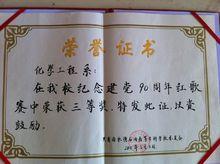 荣誉证书
化学工程系:
在我校纪念建党90周年红歌
赛中荣获三等奖,特发此证,以资
鼓励。